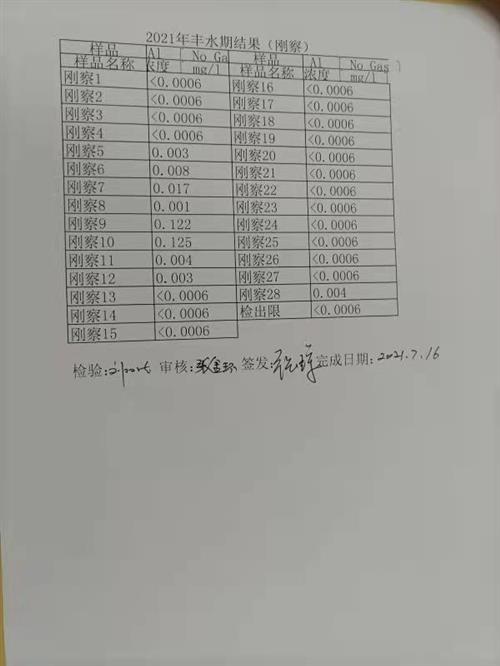 2021年丰水期结果（刚察）
样品 Al No Gas 样品 Al No Gas
样品名称 浓度 mg/l 样品名称 浓度 mg/l
刚察1 <0.0006 刚察16 <0.0006
刚察2 <0.0006 刚察17 <0.0006
刚察3 <0.0006 刚察18 <0.0006
刚察4 <0.0006 刚察19 <0.0006
刚察5 0.003 刚察20 <0.0006
刚察6 0.008 刚察21 <0.0006
刚察7 0.017 刚察22 <0.0006
刚察8 0.001 刚察23 <0.0006
刚察9 0.122 刚察24 <0.0006
刚察10 0.125 刚察25 <0.0006
刚察11 0.004 刚察26 <0.0006
刚察12 0.003 刚察27 <0.0006
刚察13 <0.0006 刚察28 0.004
刚察14 <0.0006 检出限 <0.0006
刚察15 <0.0006
检验: 审核: 签发: 完成日期: 2021.7.16